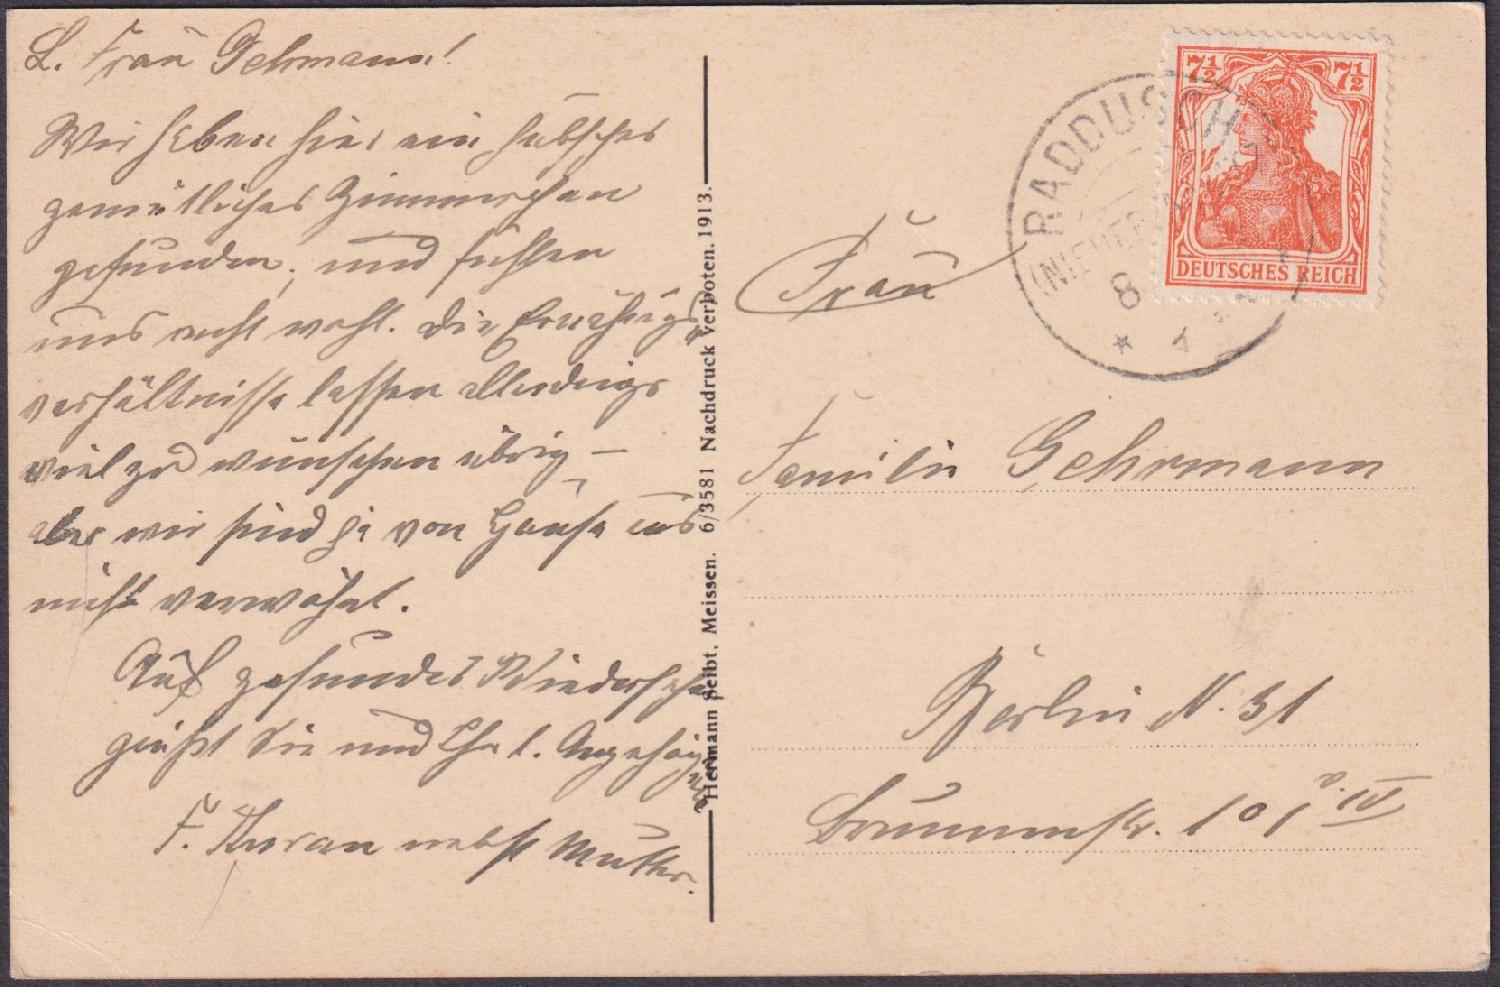 L. Frau Gehrmann!
Wir haben hier ein hübsches
gemütliches Zimmerchen
gefunden, und fühlen
uns recht wohl. Die Ernährungs
verhältnisse lassen allerdings
viel zu wünschen übrig –
aber wir sind ja von Hause aus
nicht verwöhnt.
Auf gesundes Wiedersehen
grüßt Sie und Ihre l. Angehörigen
F. nebst Mutter.
Hermann Seibt, Meissen. 6/3581 Nachdruck verboten. 1913.
RADDUSCH
8
7½ 7½
DEUTSCHES REICH
Frau
Familie Gehrmann
Berlin N. 31
Brunnenstr. 101 v. IV